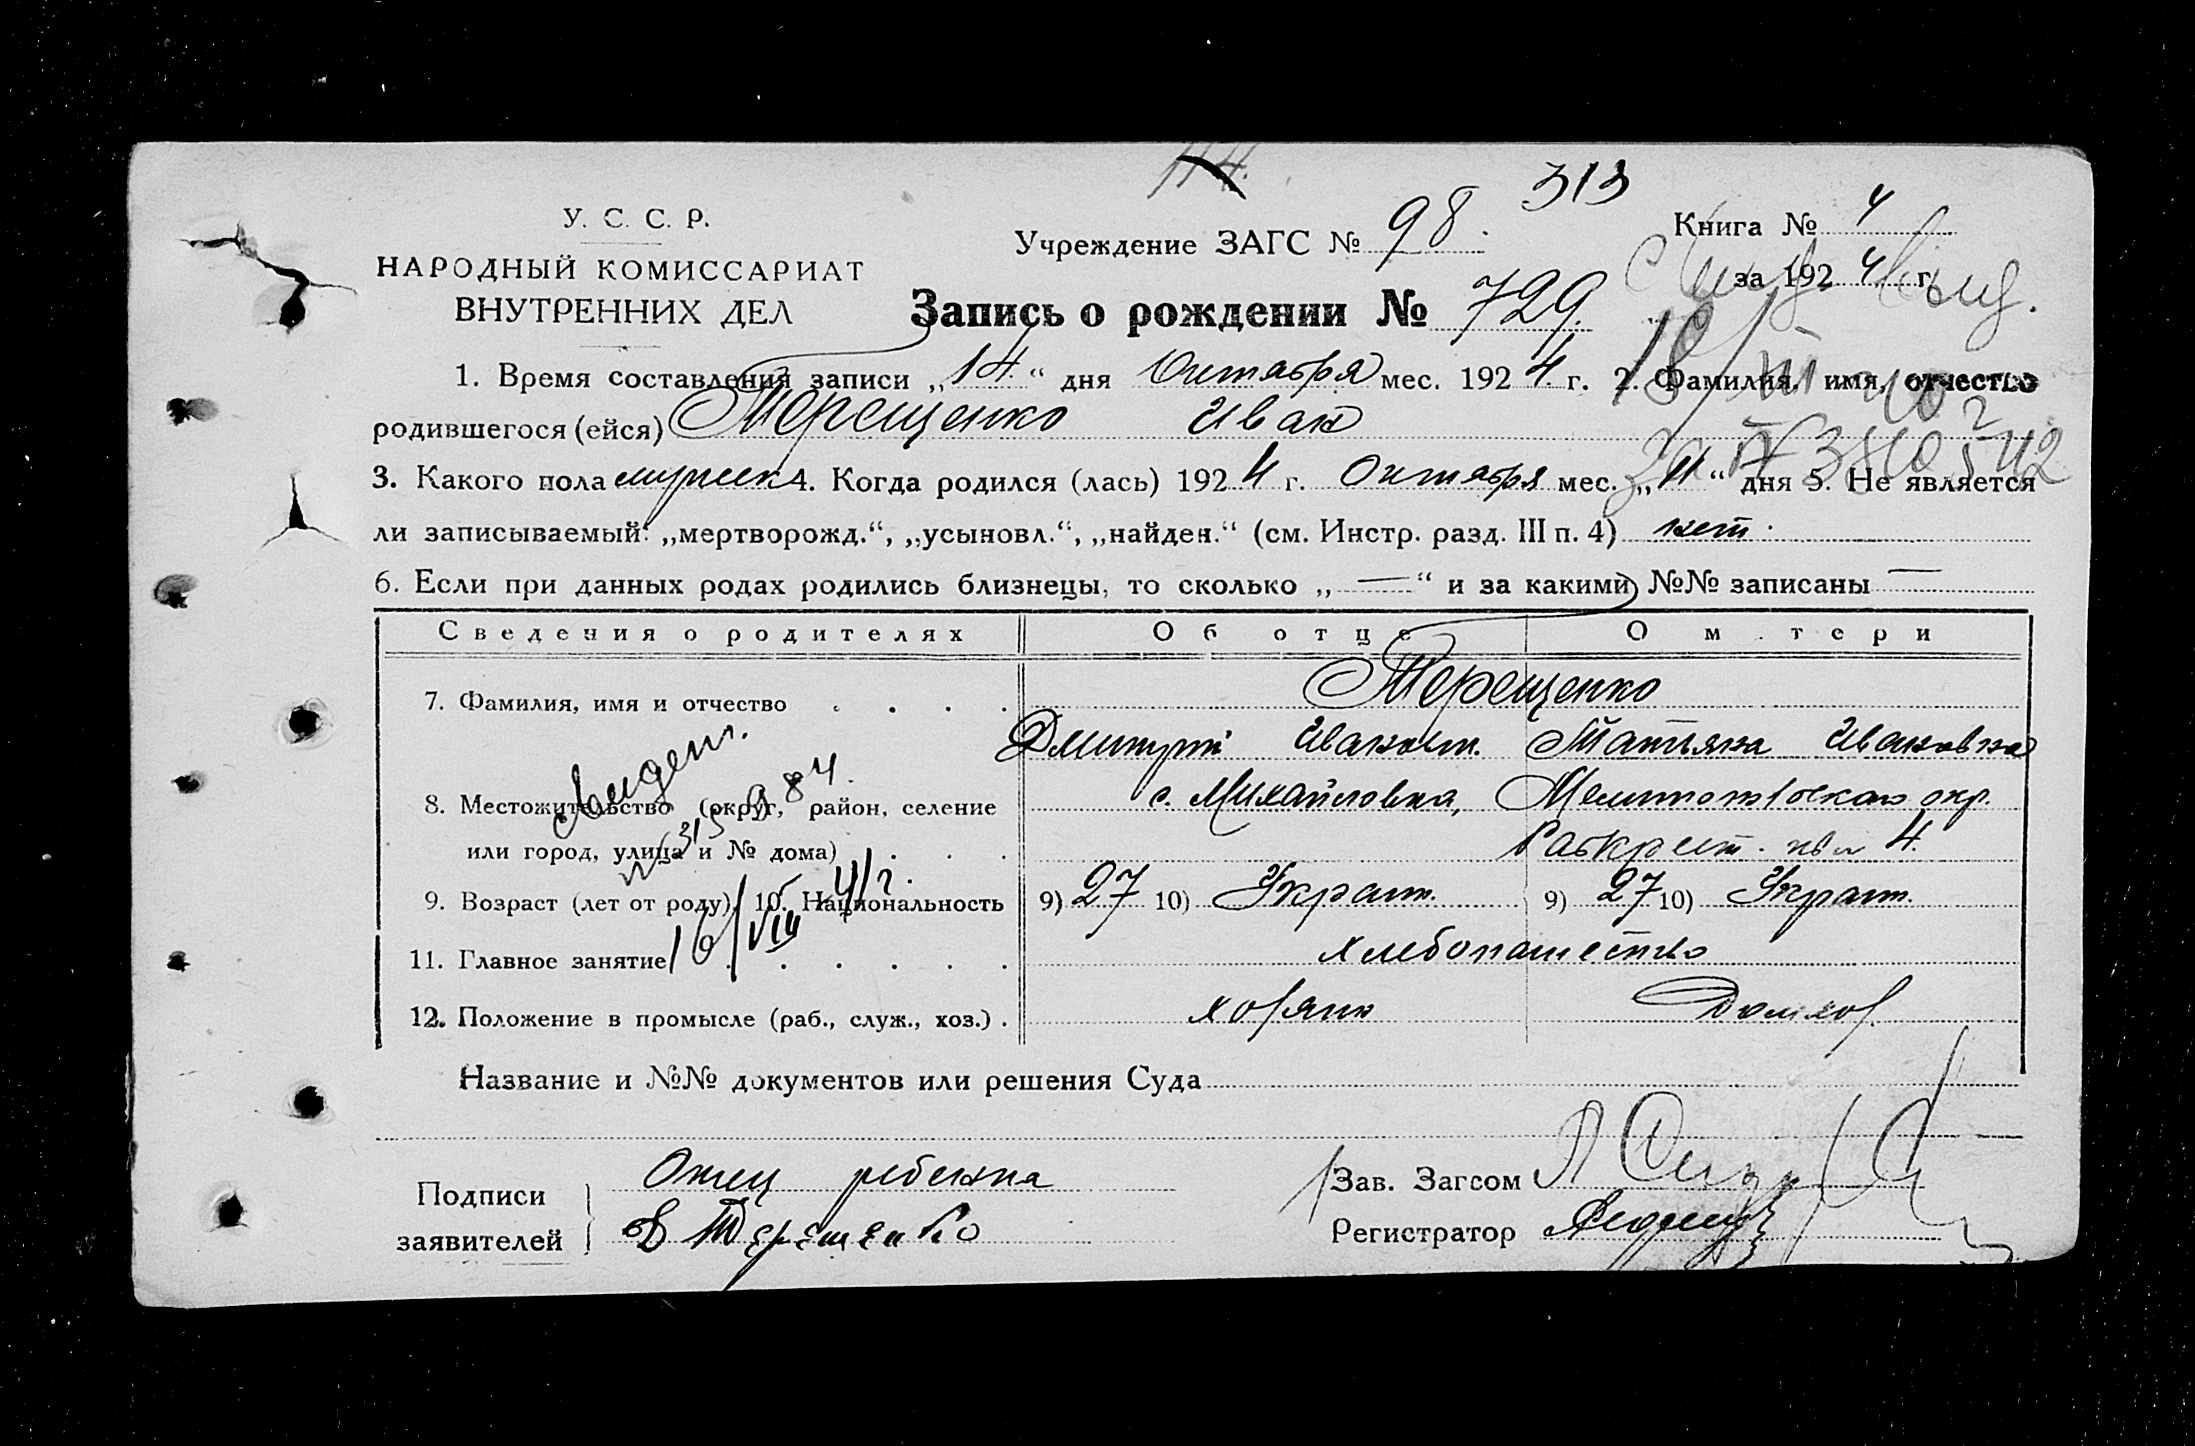 114.
313
У. С. С. Р.
НАРОДНЫЙ КОМИССАРИАТ
ВНУТРЕННИХ ДЕЛ
Учреждение ЗАГС № 98.
Книга № 4
за 1924 г.
Запись о рождении № 729.
1. Время составления записи „14.“ дня Октября мес. 1924. г. 2. Фамилия, имя, отчество
родившегося (ейся) Терещенко Иван
3. Какого пола мужск 4. Когда родился (лась) 1924 г. Октября мес. „11“ дня 5. Не является
ли записываемый: „мертворожд.“, „усыновл.“, „найден.“ (см. Инстр. разд. III п. 4) нет.
6. Если при данных родах родились близнецы, то сколько „—“ и за какими №№ записаны —
Сведения о родителях Об отце О м.тери
7. Фамилия, имя и отчество . . . . Терещенко
Дмитрий Иванов. Татьяна Ивановна
8. Местожительство (округ, район, селение с. Михайловка, Мелитопольского окр.
или город, улица и № дома) . . . 4.
9. Возраст (лет от роду). 10. Национальность 9) 27 10) Украин. 9) 27 10) Украин.
11. Главное занятие . . . . . хлебопашество
12. Положение в промысле (раб., служ., хоз.) . хозяин Домхоз.
16/VIII 41 г.
Название и №№ документов или решения Суда
Подписи заявителей
Отец ребенка
Д Терещенко
Зав. Загсом
Регистратор